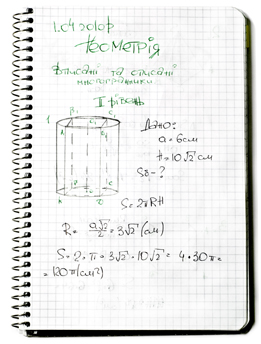 Геометрія
Вписані та описані
многогранники
II рівень
1
B₁ C₁
A₁ D₁
Дано:
a = 6см
H = 10√2 см
Sб - ?
B C
A D
S = 2πRH
R = a√2/2 = 3√2 (см)
S = 2 · π · 3√2 · 10√2 = 4 · 30π =
= 120π (см²)